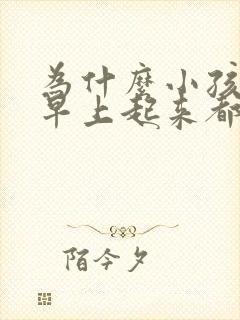 为什麽小孩
早上起来都
陌今夕